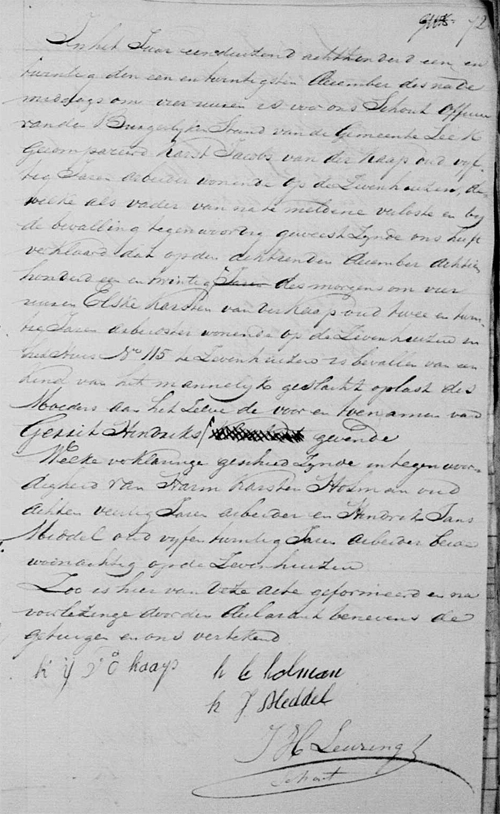 72
In het Jaar een duizend achthonderd een en
twintig den een en twintigsten December des na de
middags om vier uuren is voor ons Schout Officier
van den Burgerlijken Stand van de Gemeente Leek
Gecompareerd Karst Jacobs van der Kaap oud vyf
tig Jaren arbeider wonende op de Zevenhuizen, de
welke als vader van na te meldene verloste en by
de bevalling tegenwoordig geweest zynde ons heeft
verklaard dat op den achttienden December achttien
honderd een en twintig des morgens om vier
uuren Elske Karsten van der Kaap oud twee en twin
tig Jaren arbeidster wonende op de Zevenhuizen in
het Huis No 115 te Zevenhuizen is bevallen van een
kind van het mannelyk geslacht op last des
Moeders aan het zelve de voor en toenamen van
Gerrit Hendriks gevende
Welke verklaringe geschied zynde in tegenwoor
digheid van Harm Karsten Holman oud
achten veertig Jaren arbeider en Hendrik Jans
Meddel oud vyfentwintig Jaren arbeider beide
woonachtig op de Zevenhuizen
Zoo is hier van deze acte geformeerd en na
voorlezinge door den declarant benevens de
getuigen en ons vertekend
K Kaap
h k holman
h J Meddel
J H Leuring
Schout